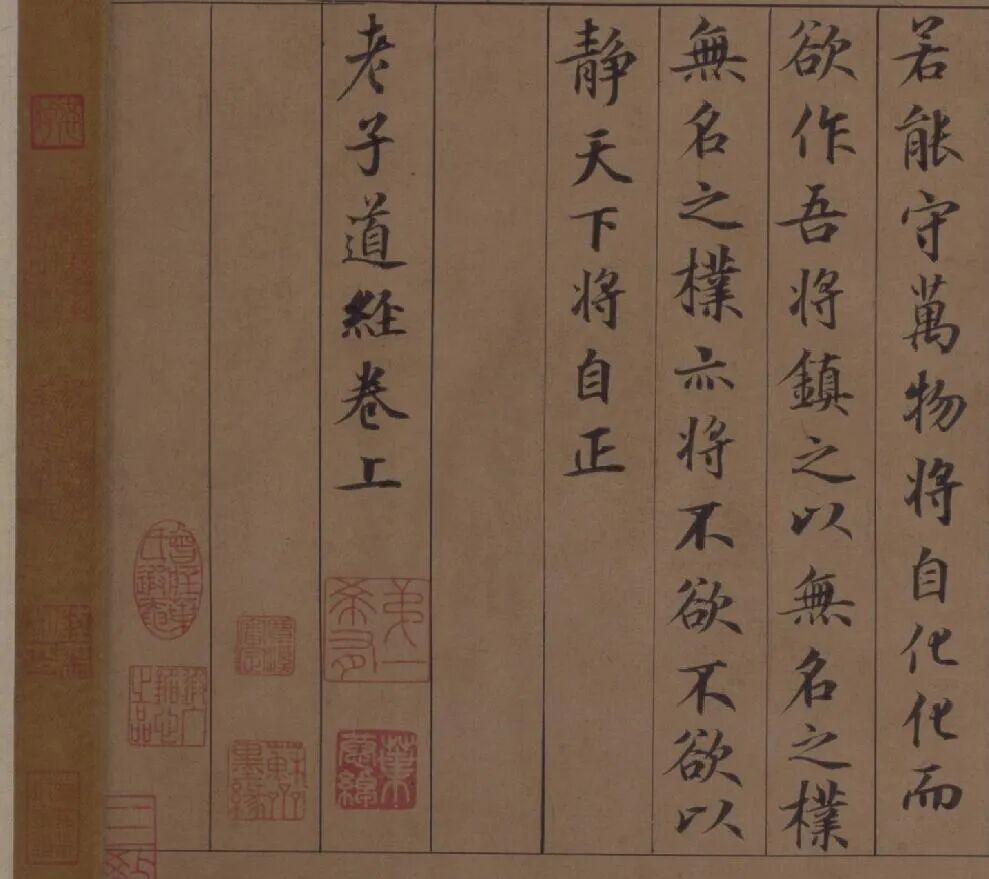 若能守萬物将自化化而
欲作吾将鎮之以無名之樸
無名之樸亦将不欲不欲以
静天下将自正
老子道經卷上